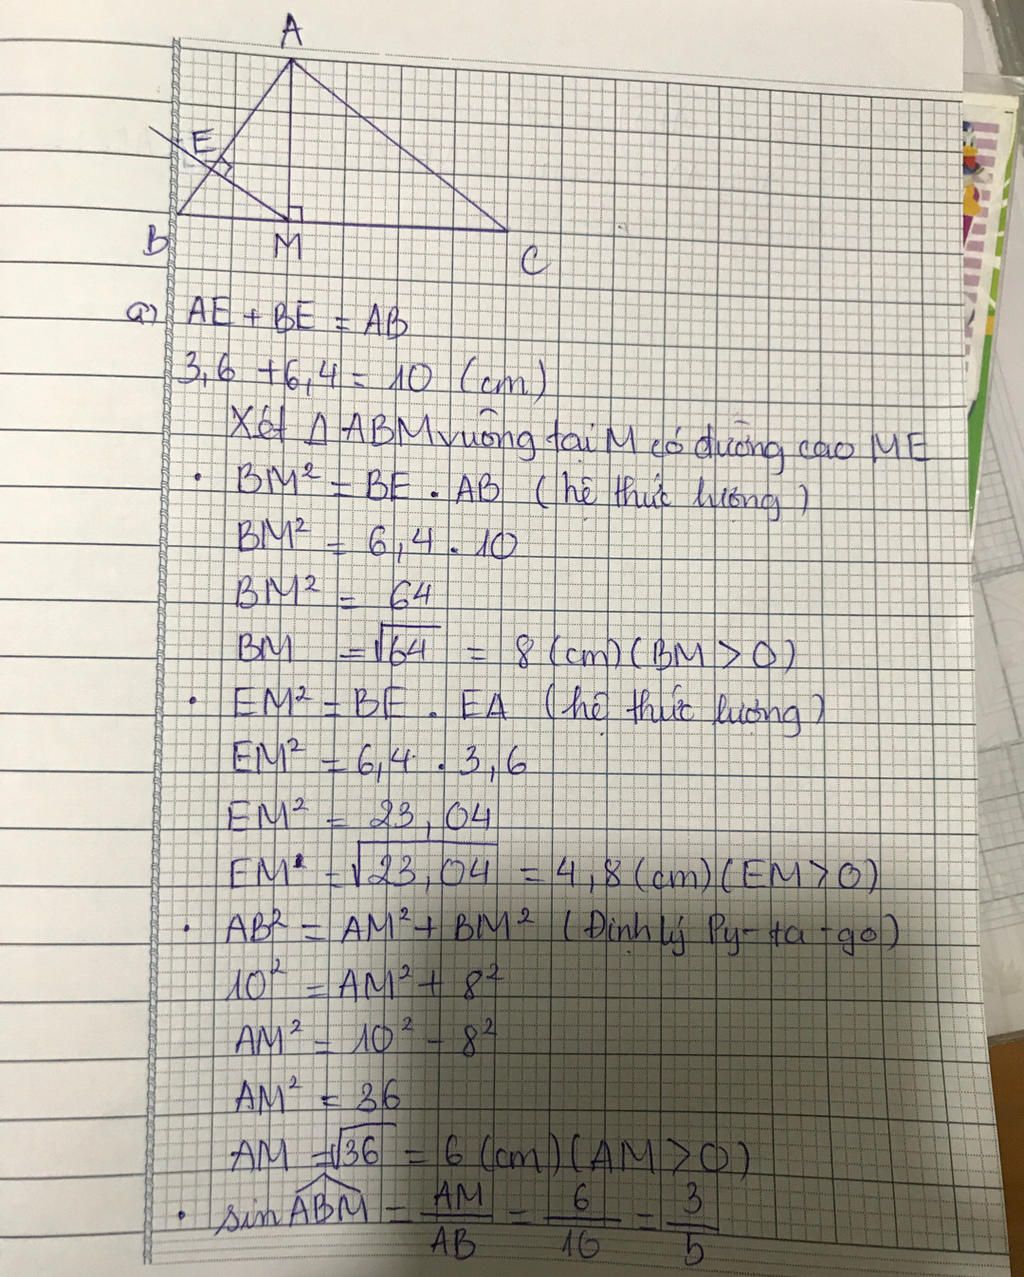 A
E
B
M
C
a) AE + BE = AB
3,6 + 6,4 = 10 (cm)
Xét Δ ABM vuông tại M có đường cao ME
• BM² = BE . AB (hệ thức lượng)
BM² = 6,4 . 10
BM² = 64
BM = √64 = 8 (cm) (BM > 0)
• EM² = BE . EA (hệ thức lượng)
EM² = 6,4 . 3,6
EM² = 23,04
EM = √23,04 = 4,8 (cm) (EM > 0)
• AB² = AM² + BM² (Định lý Py-ta-go)
10² = AM² + 8²
AM² = 10² - 8²
AM² = 36
AM = √36 = 6 (cm) (AM > 0)
• sin ABM = AM/AB = 6/10 = 3/5